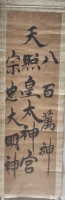 八百萬神
天照皇大神宮
宗忠大明神